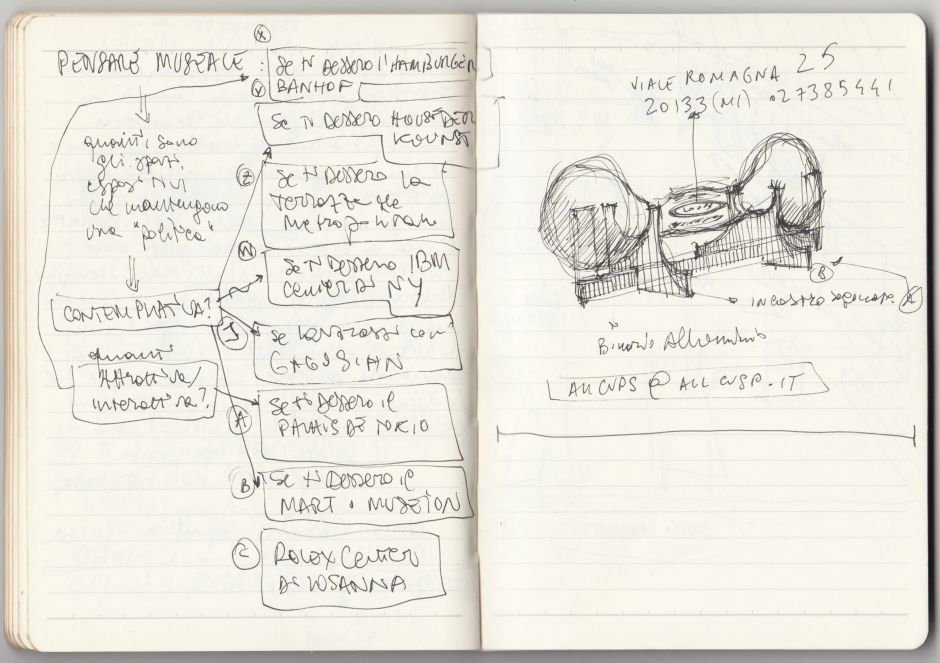 PENSARE MUSEALE :
quanti sono
gli spazi
espositivi
che mantengono
una "politica"
CONTEMPLATIVA?
quanti
Attrattiva/
interattiva?
X
Se ti dessero l'HAMBURGER
BANHOF
Y
Se ti dessero HOUSE DER
KOUNST
Z
Se ti dessero la
terrazza del
Metropolitan
W
Se ti dessero IBM
Center di NY
J
Se lavorassi con
GAGOSIAN
A
Se ti dessero il
PALAIS DE TOKIO
B
Se ti dessero il
MART o MUSEION
Rolex Center
di LOSANNA
VIALE ROMAGNA 25
20133 (MI) .027385441
B
incastro segnare. A
Binario
ALLCUPS @ ALLCUSP.IT